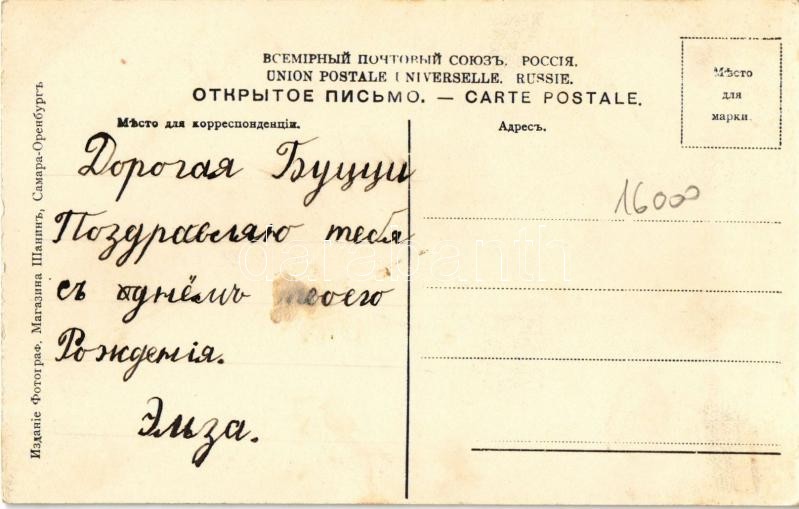 ВСЕМІРНЫЙ ПОЧТОВЫЙ СОЮЗЪ. РОССІЯ.
UNION POSTALE UNIVERSELLE. RUSSIE.
ОТКРЫТОЕ ПИСЬМО. — CARTE POSTALE.
Мѣсто
для
марки
Мѣсто для корреспонденціи.
Адресъ.
Дорогая Буцци
Поздравляю тебя
съ днёмъ твоего
Рожденія.
Эльза.
16000
Изданіе Фотограф. Магазина Шанинъ, Самара-Оренбургъ
darabanth